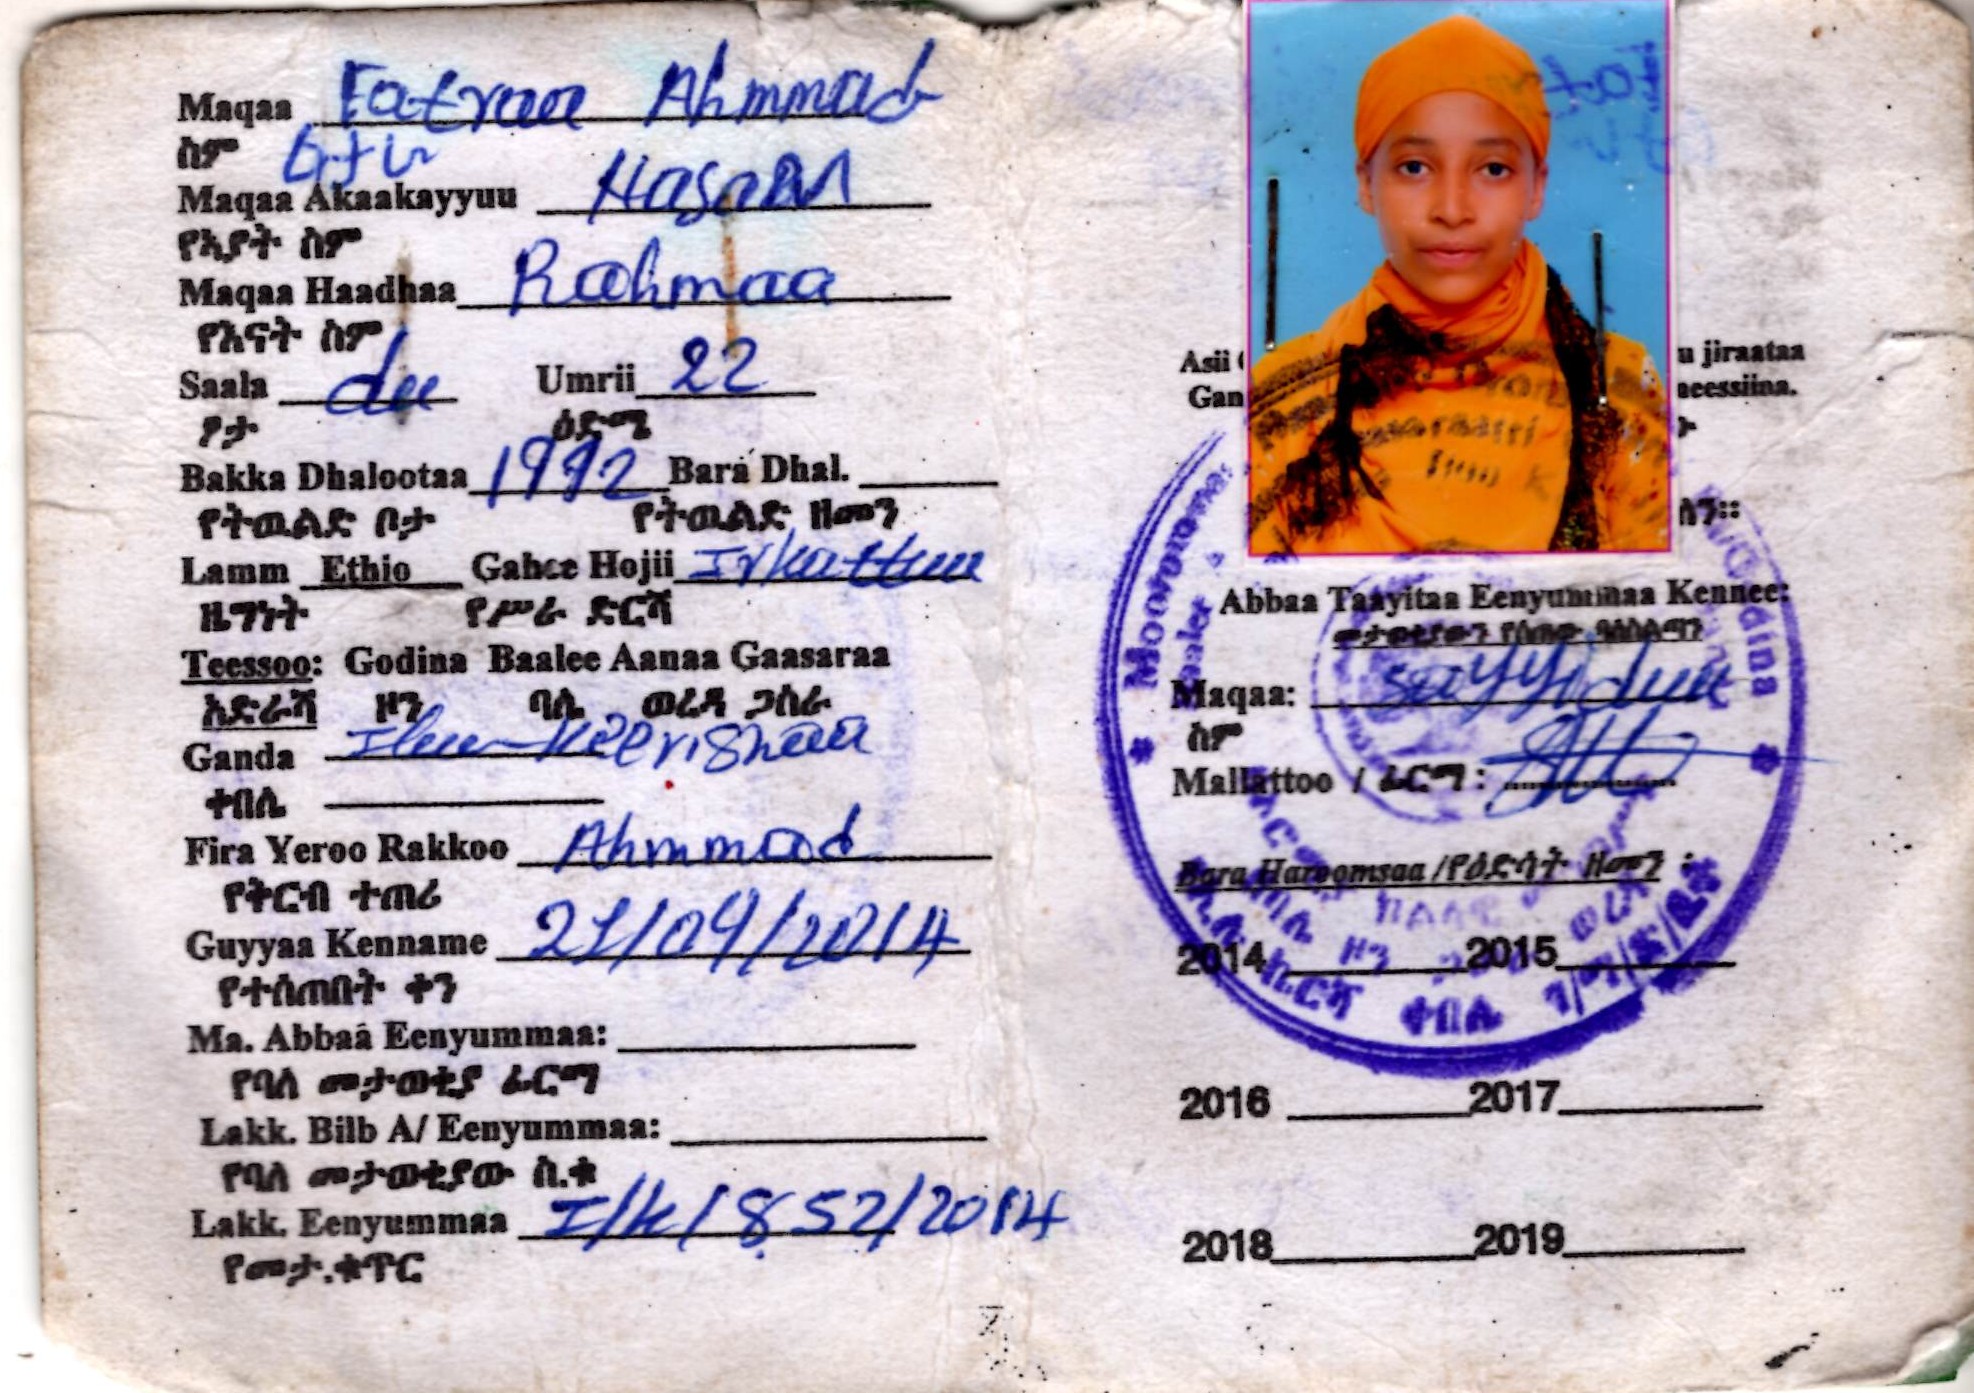 Maqaa Fatraa Ahmmad
ስም ፋትራ
Maqaa Akaakayyuu Hasan
የኣያት ስም
Maqaa Haadhaa Rahmaa
የእናት ስም
Saala du Umrii 22
ፆታ ዕድሜ
Bakka Dhalootaa 1992 Bara Dhal.
የትዉልድ ቦታ የትዉልድ ዘመን
Lamm Ethio Gahee Hojii
ዜግነት የሥራ ድርሻ
Teessoo: Godina Baalee Aanaa Gaasaraa
አድራሻ ዞን ባሌ ወረዳ ጋሰራ
Ganda
ቀበሌ
Fira Yeroo Rakkoo Ahmmad
የቅርብ ተጠሪ
Guyyaa Kenname 21/09/2014
የተሰጠበት ቀን
Ma. Abbaa Eenyummaa:
የባለ መታወቂያ ፊርማ
Lakk. Bilb A/ Eenyummaa:
የባለ መታወቂያው ስ.ቁ
Lakk. Eenyummaa I/k/852/2014
የመታ.ቁጥር
Asii
u jiraataa
Gan
neessiina.
Abbaa Taayitaa Eenyummaa Kennee:
መታወቂያውን የሰጠው ባለስልጣን
Maqaa: Sayyiduu
ስም
Mallattoo / ፊርማ :
Bara Haroomsaa /የዕድሳት ዘመን :
2014 2015
ቀበሌ
2016 2017
2018 2019